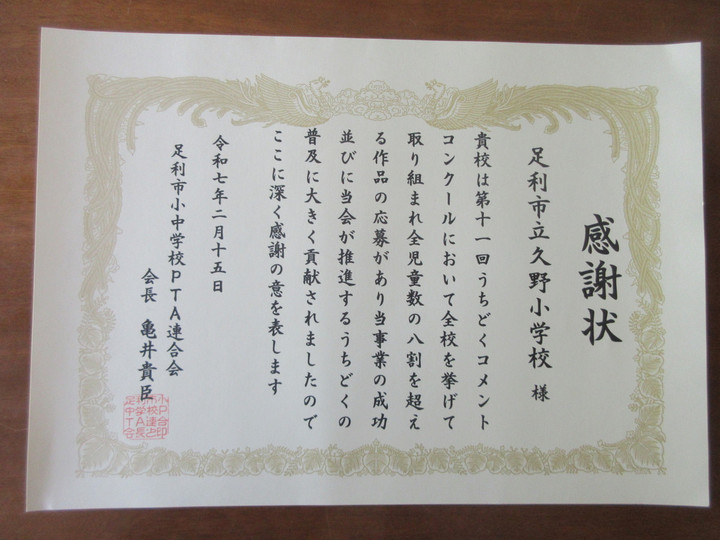 感謝状
足利市立久野小学校 様
貴校は第十一回うちどくコメント
コンクールにおいて全校を挙げて
取り組まれ全児童数の八割を超え
る作品の応募があり当事業の成功
並びに当会が推進するうちどくの
普及に大きく貢献されましたので
ここに深く感謝の意を表します
令和七年二月十五日
足利市小中学校PTA連合会
会長 亀井貴臣